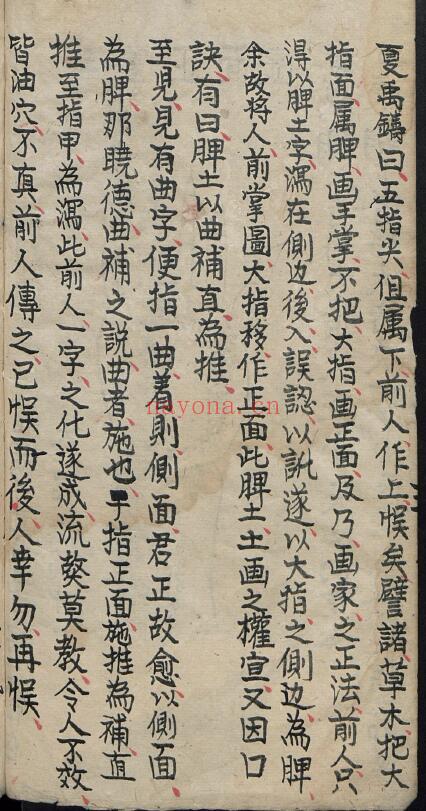 夏禹鑄曰五指尖但属下前人作上悮矣譬諸草木把大
指面属脾画手掌不把大指画正面及乃画家之正法前人只
得以脾土字潟在側边後入誤認以訛遂以大指之側边為脾
余故将人前掌圖大指移作正面此脾土土画之權宜又因口
訣有曰脾土以曲補直為推
至児見有曲字便指一曲着則側面君正故愈以側面
為脾那曉德曲補之説曲者施也于指正面施推為補直
推至指甲為潟此前人一字之化遂成流獘莫教令人不效
皆油穴不真前人傳之已悮而後人幸勿再悮
nayona.cn